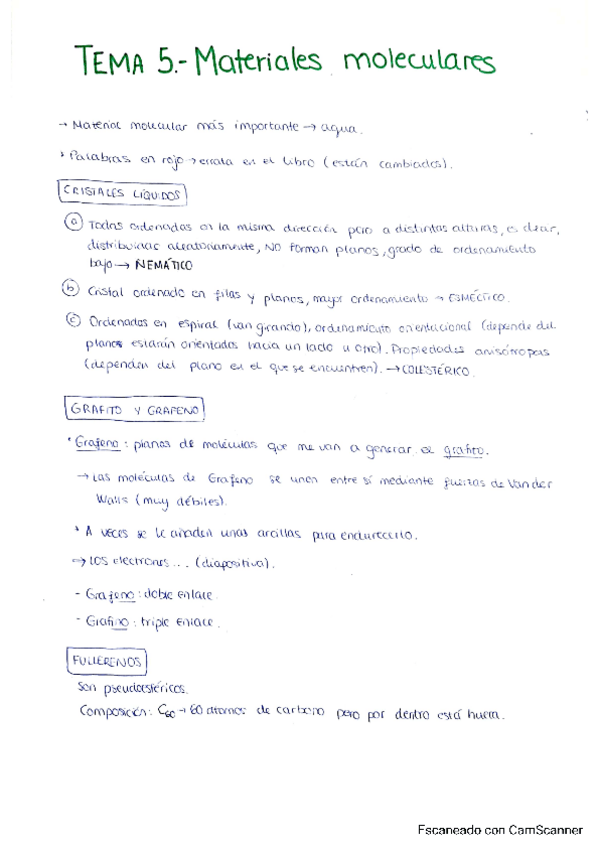 TEMA 5.- Materiales moleculares
→ Material molecular más importante → agua.
* Palabras en rojo → errata en el libro (están cambiados).
CRISTALES LÍQUIDOS
a Todas ordenadas en la misma dirección pero a distintas alturas, es decir,
distribuidas aleatoriamente, NO forman planos, grado de ordenamiento
bajo → NEMÁTICO
b Cristal ordenado en filas y planos, mayor ordenamiento → ESMÉCTICO.
c Ordenados en espiral (van girando), ordenamiento orientacional (depende del
plano estarán orientados hacia un lado u otro). Propiedades anisótropas
(dependen del plano en el que se encuentren). → COLESTÉRICO.
GRAFITO Y GRAFENO
* Grafeno: planos de moléculas que me van a generar el grafito.
→ Las moléculas de Grafeno se unen entre sí mediante fuerzas de Van der
Walls (muy débiles).
* A veces se le añaden unas arcillas para endurecerlo.
→ Los electrones... (diapositiva).
- Grafeno: doble enlace.
- Grafino: triple enlace.
FULLERENOS
Son pseudoesféricos.
Composición: C60 → 60 átomos de carbono pero por dentro está hueca.
Escaneado con CamScanner